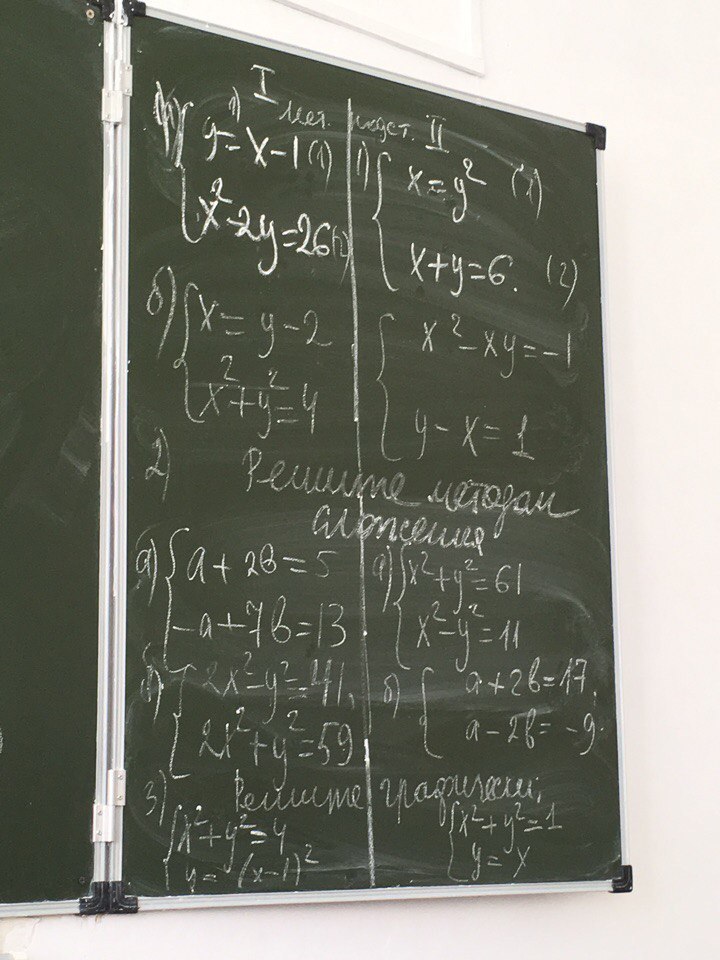 I
II
мет. подст.
1) а) { y = x-1 (1)
x²-2y=26 (2)
1) { x=y² (1)
x+y=6. (2)
б) { x = y-2
x²+y²=4
{ x²-xy=-1
y-x=1
2) Решите методом
сложения
а) { a+2b=5
-a+7b=13
б) { 2x²-y²=41,
2x²+y²=59
а) { x²+y²=61
x²-y²=11
б) { a+2b=17,
a-2b=-9.
3) Решите графически,
{ x²+y²=4
y=(x-1)²
{ x²+y²=1
y=x